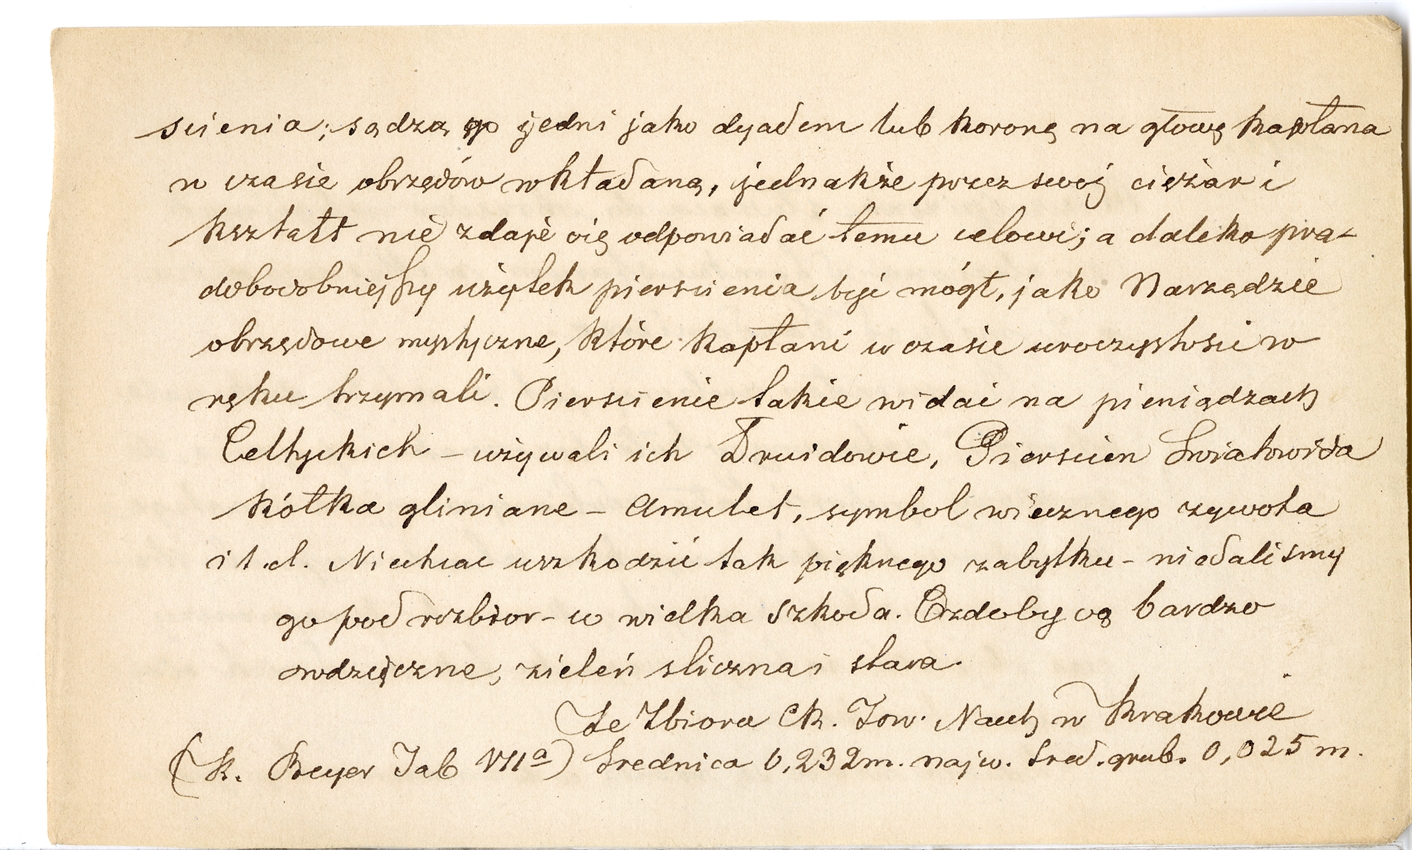 scienia; sądzą go jedni jako dyadem lub koronę na głowę kapłana
w czasie obrzędów wkładaną, jednakże przez swój ciężar i
kształt nie zdaje się odpowiadać temu celowi; a daleko pra-
dobodobniejszy użytek pierscienia być mógł, jako Narzędzie
obrzędowe mystyczne, które kapłani w czasie uroczystosci w
ręku trzymali. Pierscienie takie widać na pieniądzach
Celtyckich – używali ich Druidowie, Pierscien Swiatowida
kółka gliniane – Amulet, symbol wiecznego zywota
i t. d. Niechcac uszkodzić tak pięknego zabytku – niedalismy
go pod rozbior – co wielka szkoda. Ozdoby są bardzo
wdzięczne, zieleń sliczna i stara.
Ze Zbiora CK. Tow. Nauk w Krakowie
(K. Beyer Tab VIIa) Srednica 0,232m. najw. Sred. grub. 0,025 m.